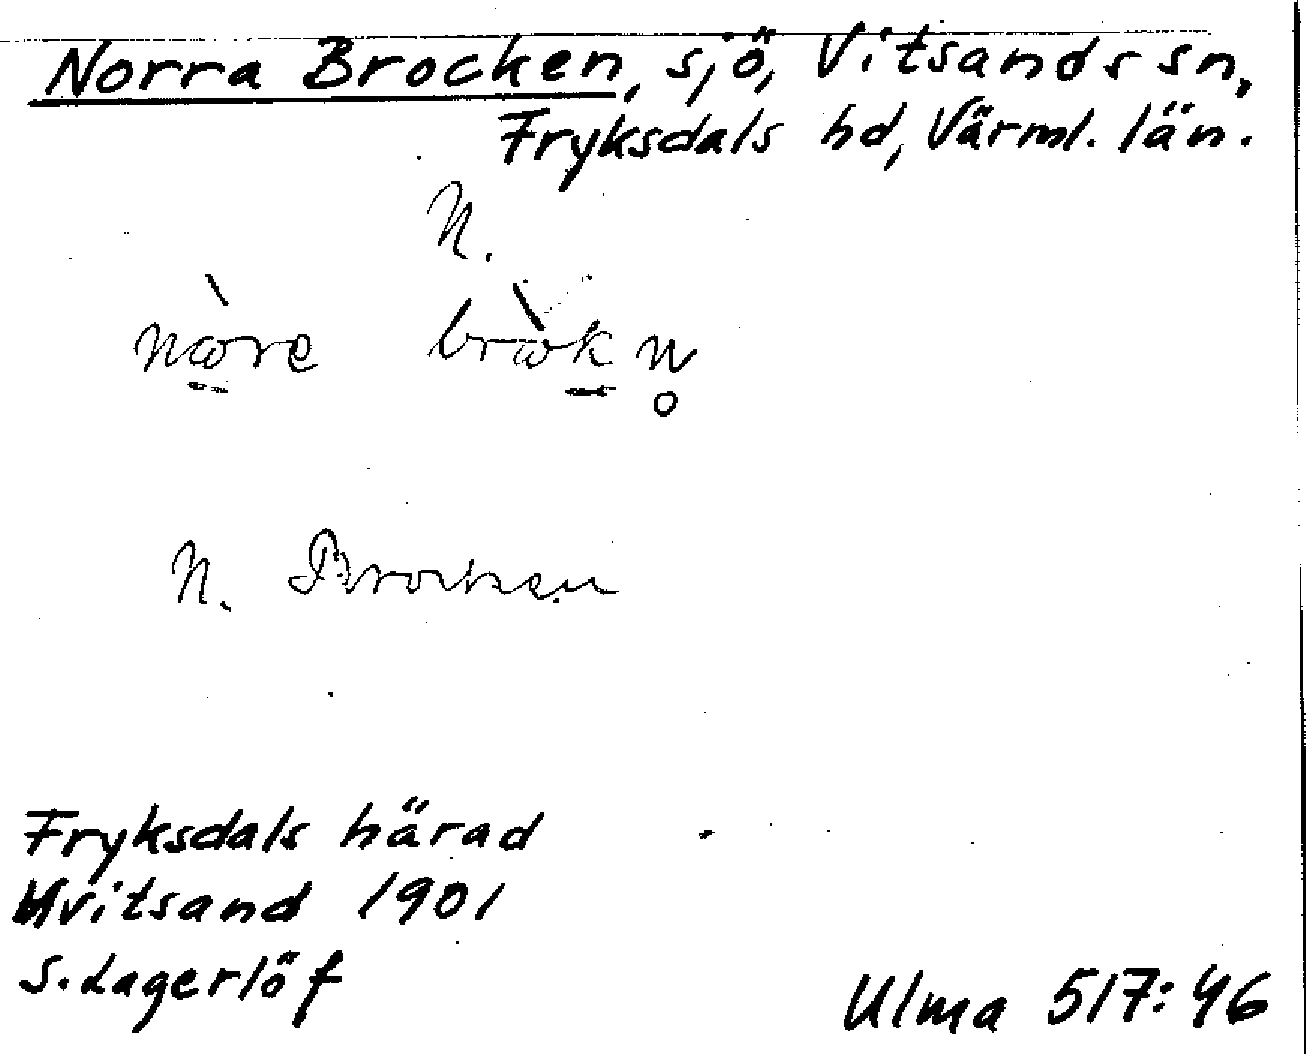 Norra Brocken, sjö, Vitsands sn,
Fryksdals hd, Värml. län.
N.
nɷ̀re brɷ̀kn̥
N. Brocken
Fryksdals härad
Hvitsand 1901
S. Lagerlöf
Ulma 517:46